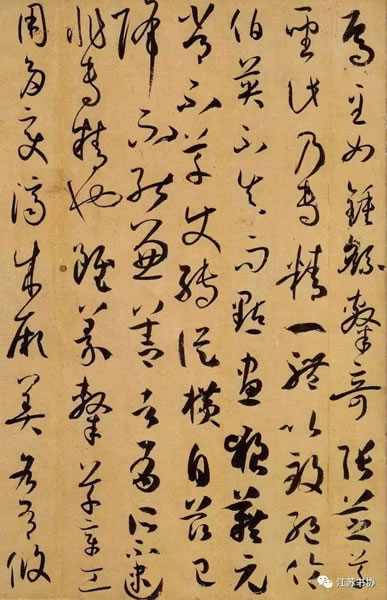 焉至如鍾繇隸奇張芝草
聖此乃專精一體以致絕倫
伯英不真而點畫狼藉元
常不草使轉縱橫自茲已
降不能兼善者有所不逮
非專精也雖篆隸草章工
用多變濟成厥美各有攸
江苏书协